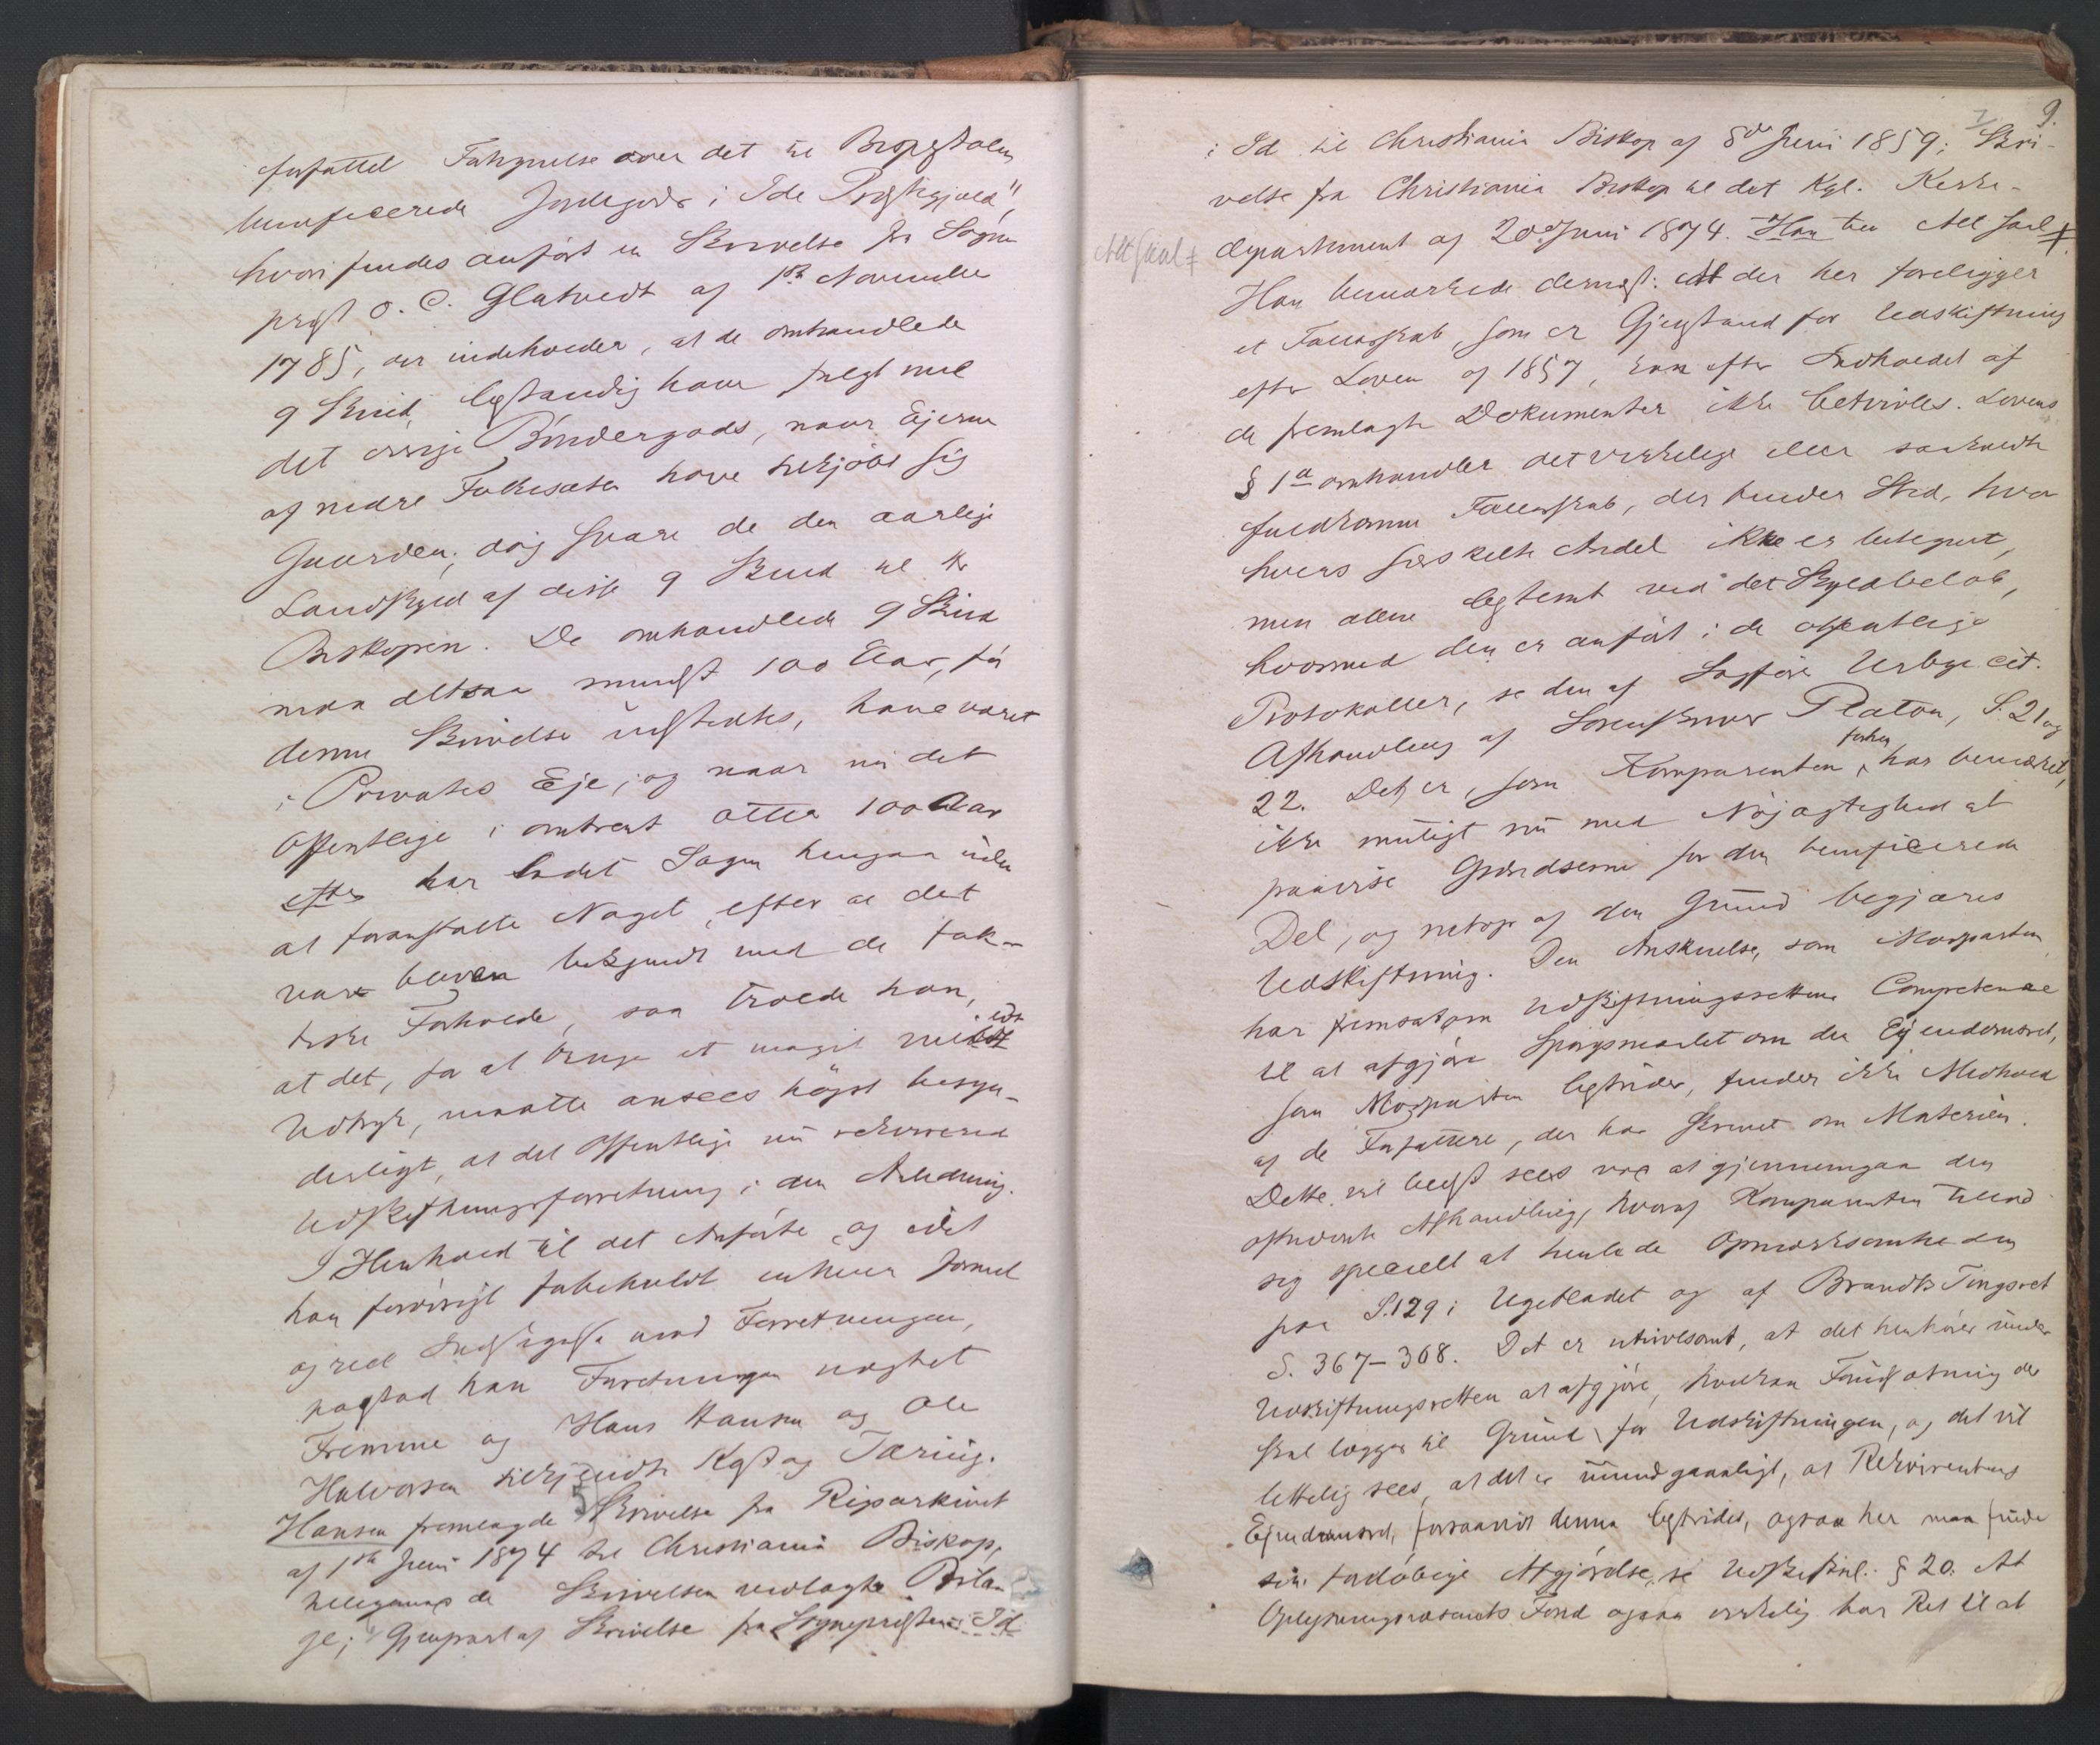 forfattet Fortegnelse over det til Bispestolen
beneficerede Jordegods i Ide Præstegjeld",
hvori findes anført en Skrivelse fra Sogne
præst O. C. Glatvedt af 1ste November
1785, der indeholder, at de omhandlede
9 Skind bestandig have fulgt med
det øvrige Bøndergods, naar Ejerne
af nedre Folkesater have tilkjøbt sig
Gaarden; dog svare de den aarlige
Landskyld af disse 9 Skind til Hr
Biskopen. De omhandlede 9 Skind
maa altsaa mindst 100 Aar, før
denne Skrivelse udstedtes, have været
i Privates Eje; og naar nu det
Offentlige i omtrent atter 100 Aar
efter har ladet Sagen hengaa uden
at foranstalte Noget, efter at det
var bleven bekjendt med de fak-
tiske Forholde, saa troede han,
at det, for at bruge et meget mildt
Udtryk, maatte ansees høist besyn-
derligt, at det Offentlige nu rekvirered
Udskiftningsforretning i den Anledning.
I Henhold til det Anførte og idet
han forøvrigt forbeholdt enhver formel
og reel Indsigelse mod Forretningen,
paastod han Forretningen nægtet
Fremme og Hans Hansen og Ole
Halvorsen tilkjendte Kost og Tæring.
Hansen fremlagde 5) Skrivelse fra Riparkivet
af 1ste Juni 1874 til Christiania Biskop,
tilligemed de Skrivelsen vedlagte Bila
ge; Gjenpart af Skrivelse fra Sognepræsten i Id
9.
i Id til Christiania Biskop af 8de Juni 1859; Skri-
velse fra Christiania Biskop til det Kgl. Kirke-
departement af 20de Juni 1874. Han
Alt saal ǂ
Han bemærkede dernæst: At der her foreligger
et Fællesskab, som er Gjenstand for Udskiftning
efter Loven af 1857, kan efter Indholdet af
de fremlagte Dokumenter ikke betvivles. Lovens
§ 1a omhandler det virkelige eller saakaldte
fuldkomne Fællesskab, der finder Sted, hvor
hvers særskilte Andel ikke er betegnet,
men alene bestemt ved det Skyldbeløb,
hvormed den er anført i de offentlige
Protokoller, se den af Sagfører Urbye cit.
Afhandling af Sorenskriver Platou, S. 21 og
22. Det er, som Komparenten forhen har bemærket,
ikke muligt nu med Nøjagtighed at
paavise Grændserne for den beneficerede
Del, og netop af den Grund begjæres
Udskiftning. Den Anskuelse, som Modparten
har fremsat om Udskiftningsrettens Competence
til at afgjøre Spørgsmaalet om den Ejendomsret,
som Modparten bestrider, finder ikke Medhold
af de Forfattere, der har skrevet om Materien.
Dette vil bedst sees ved at gjennemgaa den
oftnævnte Afhandling, hvoraf Komparenten tillod
sig specielt at henlede Opmærksomheden
paa S. 129 i Ugebladet og af Brandts Tingsret
S. 367-368. Det er utvivlsomt, at det henhører under
Udskiftningsretten at afgjøre, hvilken Forudsætning der
skal lægges til Grund for Udskiftningen, og det vil
lettelig sees, at det er uundgaaeligt, at Rekvirentens
Ejendomsret, forsaavidt denne bestrides, ogsaa her maa finde
sin foreløbige Afgjørelse, se Udskiftnl. § 20. At
Oplysningsvæsenets Fond ogsaa virkelig har Ret til at